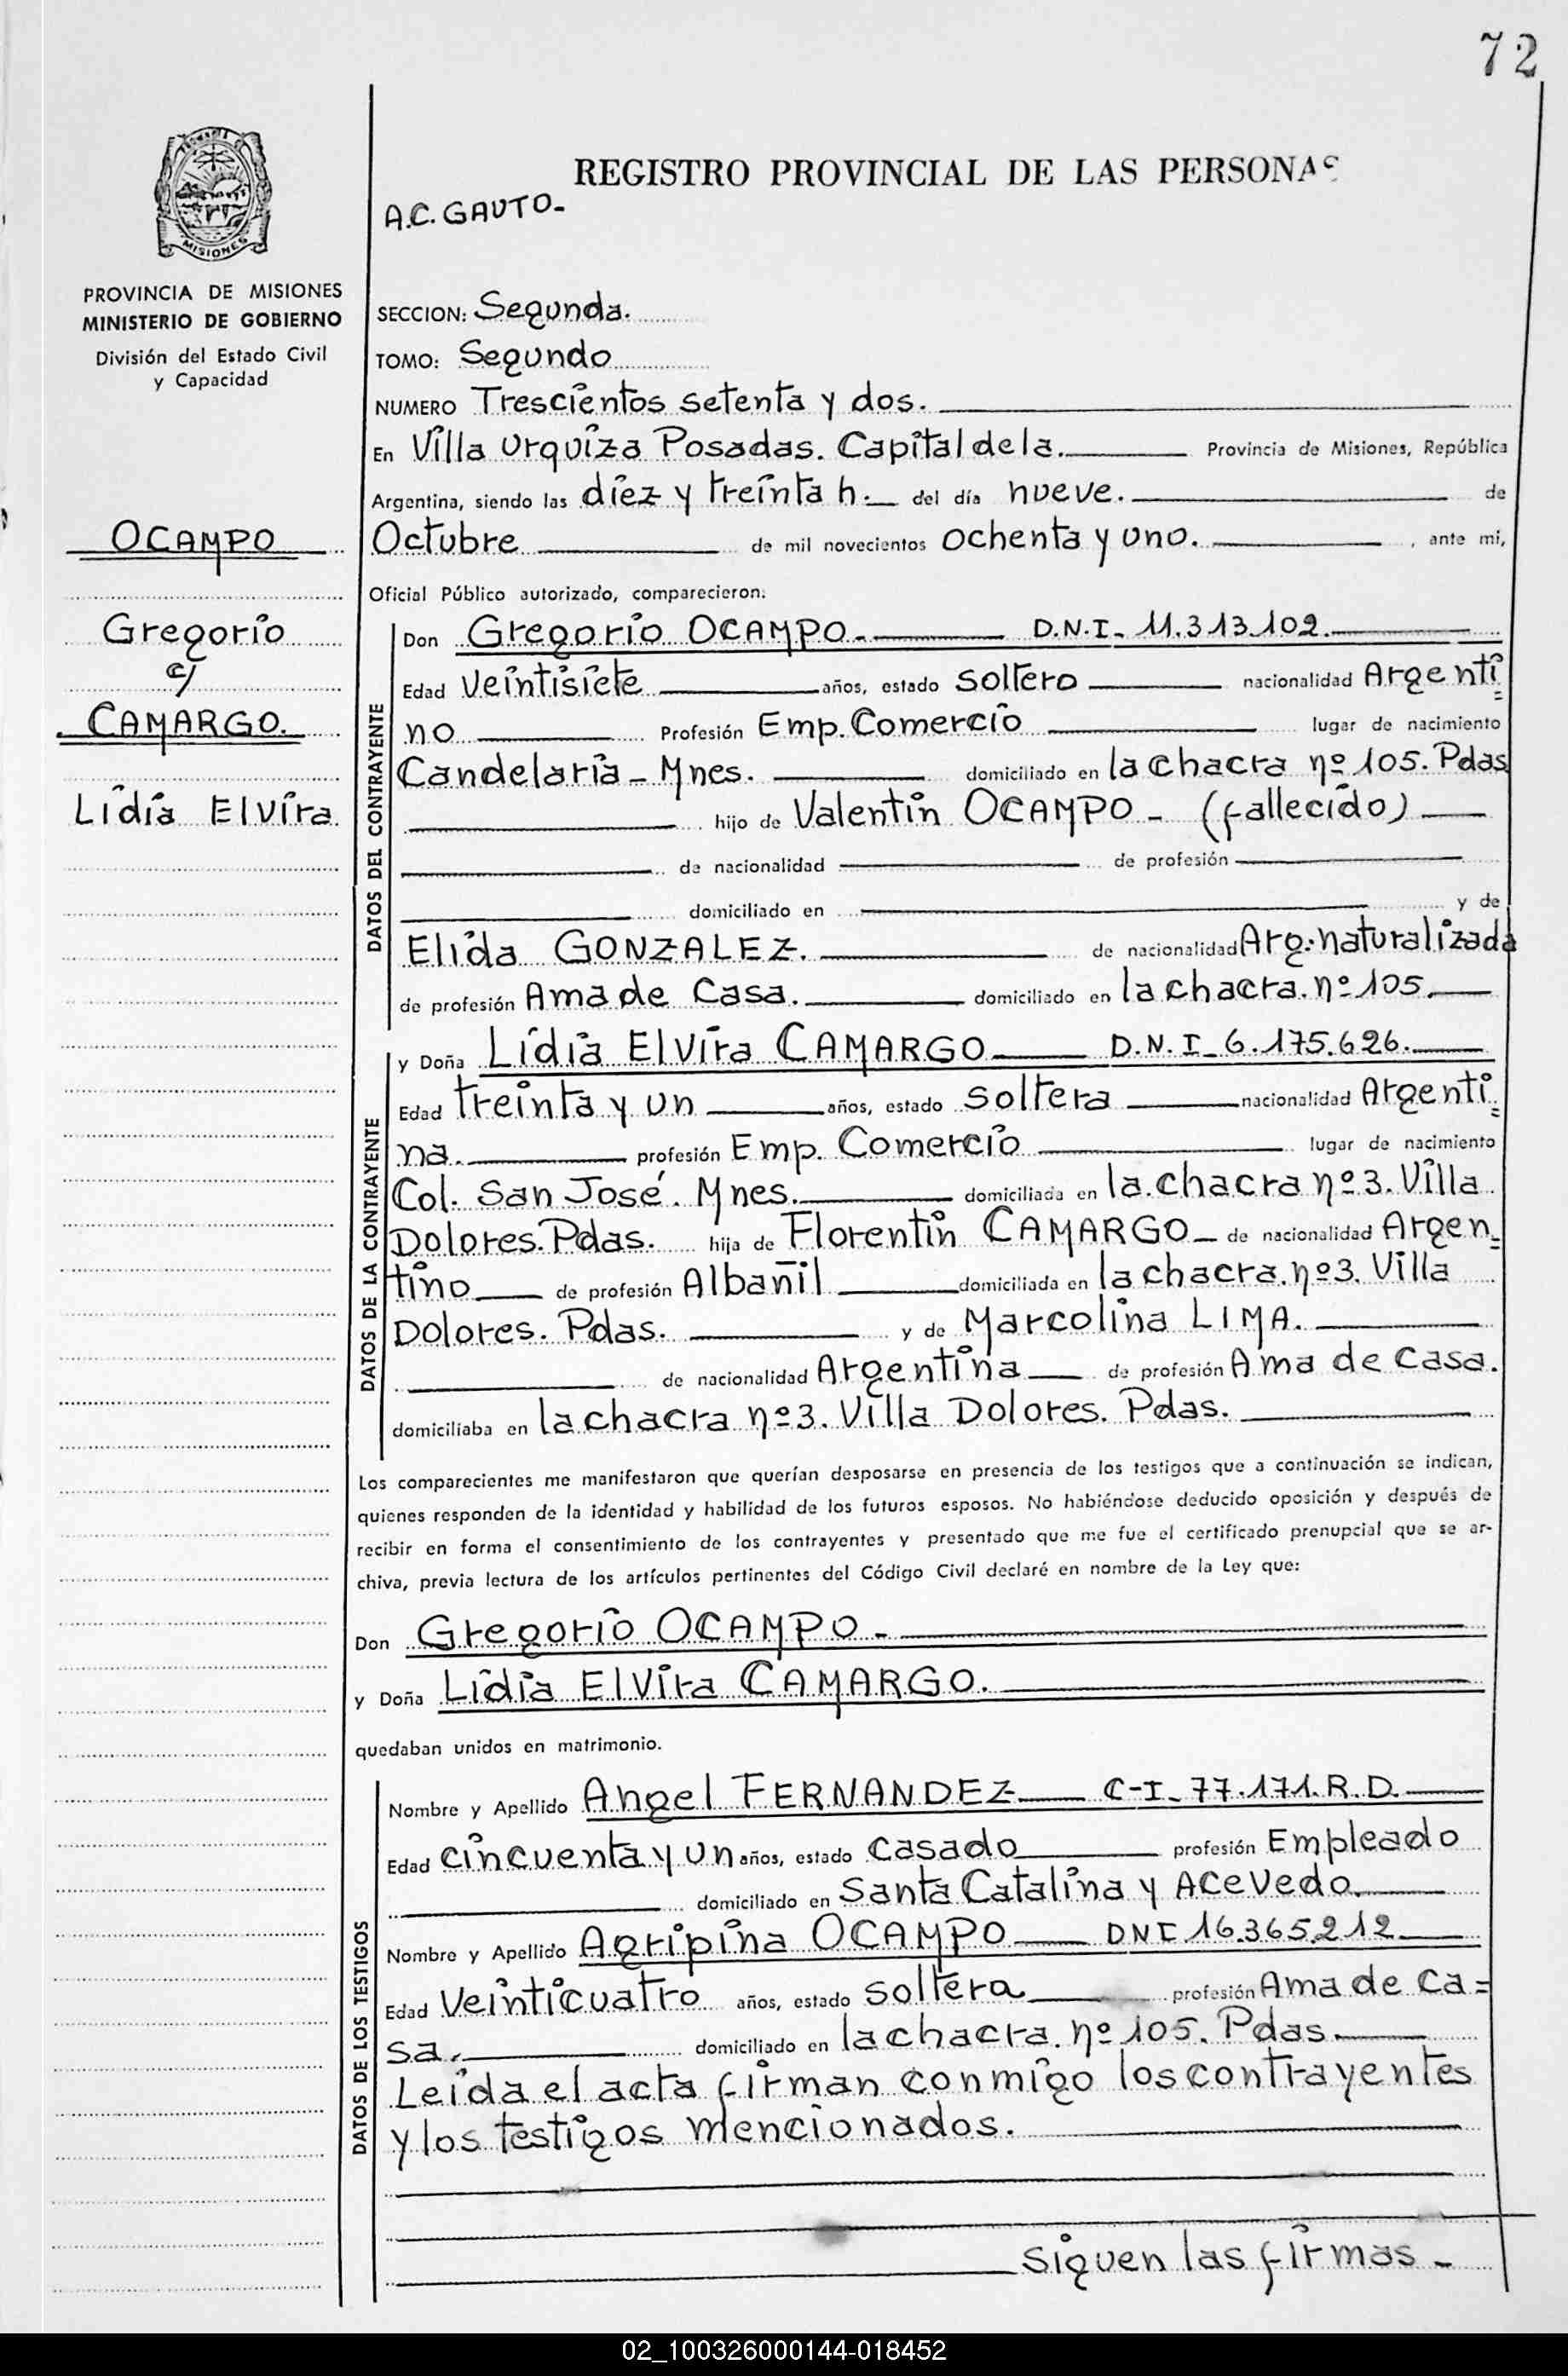 72
REGISTRO PROVINCIAL DE LAS PERSONAS
A.C. GAUTO-
MISIONES
PROVINCIA DE MISIONES
MINISTERIO DE GOBIERNO
División del Estado Civil
y Capacidad
OCAMPO
Gregorio
c/
CAMARGO.
Lidia Elvira
SECCION: Segunda.
TOMO: Segundo
NUMERO Trescientos setenta y dos.
En Villa Urquiza Posadas. Capital de la. Provincia de Misiones, República
Argentina, siendo las diez y treinta h. del día nueve. de
Octubre de mil novecientos ochenta y uno. , ante mi,
Oficial Público autorizado, comparecieron:
DATOS DEL CONTRAYENTE
Don Gregorio OCAMPO.- D.N.I- 11.313.102.
Edad Veintisiete años, estado soltero nacionalidad Argenti=
no Profesión Emp. Comercio lugar de nacimiento
Candelaria - Mnes. domiciliado en la chacra nº 105. Pdas
hijo de Valentin OCAMPO - (fallecido)
de nacionalidad de profesión
domiciliado en y de
Elida GONZALEZ. de nacionalidad Arg. naturalizada
de profesión Ama de Casa. domiciliado en la chacra. nº 105.
DATOS DE LA CONTRAYENTE
y Doña Lidia Elvira CAMARGO D.N.I- 6.175.626.
Edad treinta y un años, estado soltera nacionalidad Argenti=
na. profesión Emp. Comercio lugar de nacimiento
Col. San José. Mnes. domiciliada en la chacra nº 3. Villa
Dolores. Pdas. hija de Florentin CAMARGO- de nacionalidad Argen=
tino de profesión Albañil domiciliada en la chacra. nº 3. Villa
Dolores. Pdas. y de Marcolina LIMA.
de nacionalidad Argentina de profesión Ama de casa.
domiciliaba en la chacra nº 3. Villa Dolores. Pdas.
Los comparecientes me manifestaron que querían desposarse en presencia de los testigos que a continuación se indican,
quienes responden de la identidad y habilidad de los futuros esposos. No habiéndose deducido oposición y después de
recibir en forma el consentimiento de los contrayentes y presentado que me fue el certificado prenupcial que se ar-
chiva, previa lectura de los artículos pertinentes del Código Civil declaré en nombre de la Ley que:
Don Gregorio OCAMPO -
y Doña Lidia Elvira CAMARGO.
quedaban unidos en matrimonio.
DATOS DE LOS TESTIGOS
Nombre y Apellido Angel FERNANDEZ C-I- 77.171.R.D.
Edad cincuenta y un años, estado casado profesión Empleado
domiciliado en Santa Catalina y Acevedo.
Nombre y Apellido Agripina OCAMPO DNI 16.365.212
Edad Veinticuatro años, estado soltera profesión Ama de ca=
sa. domiciliado en la chacra. nº 105. Pdas.
Leida el acta firman conmigo los contrayentes
y los testigos mencionados.
Siguen las firmas -
02_100326000144-018452